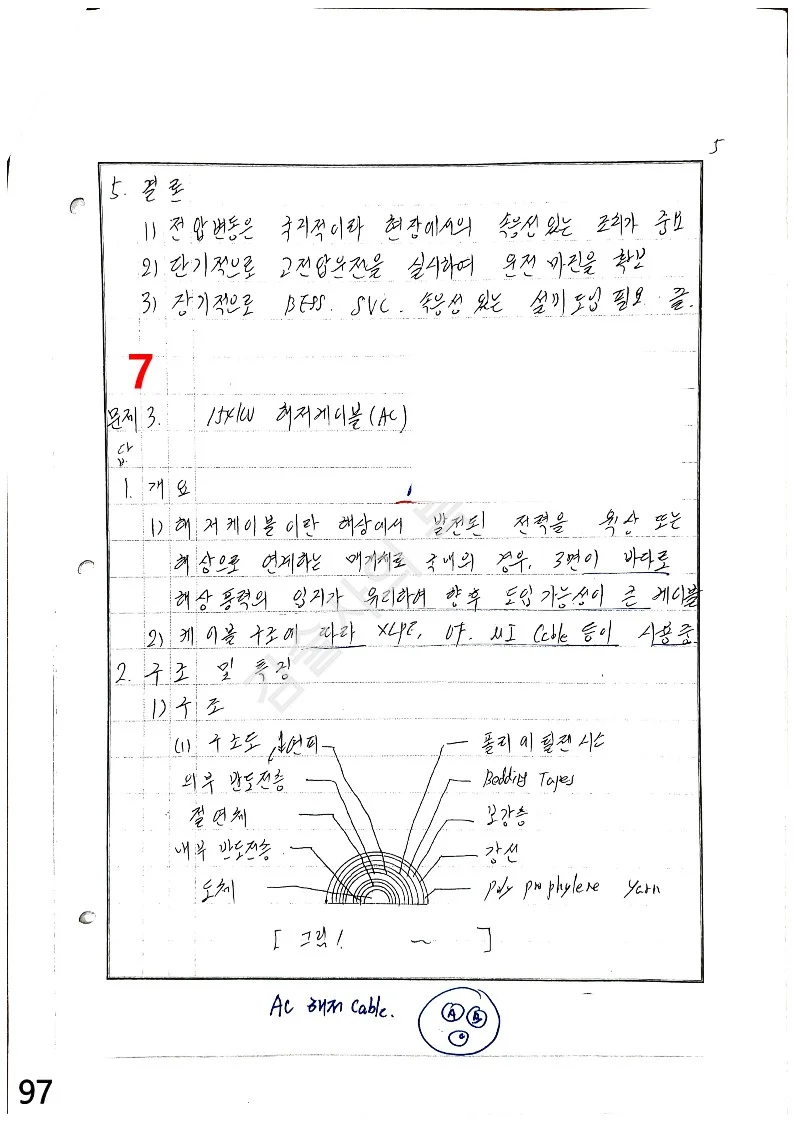 5
5. 결론
1) 전압변동은 국지적이라 현장에서의 속응성 있는 조치가 중요
2) 단기적으로 고전압운전을 실시하여 운전 마진을 확보
3) 장기적으로 BESS. SVC. 속응성 있는 설비 도입 필요. 끝.
7
문제 3. 154kV 해저케이블(AC)
답
1. 개요
1) 해저케이블이란 해상에서 발전된 전력을 육상 또는
해상으로 연계하는 매개체로 국내의 경우, 3면이 바다로
해상풍력의 입지가 유리하여 향후 도입가능성이 큰 케이블
2) 케이블 구조에 따라 XLPE, OF. MI Cable 등이 사용중
2. 구조 및 특징
1) 구조
(1) 구조도 연피 폴리에틸렌 시스
외부 반도전층 Bedding Tapes
절연체 보강층
내부 반도전층 강선
도체 poly prophylene Yarn
[그림1. ~ ]
AC 해저 Cable. A B
97